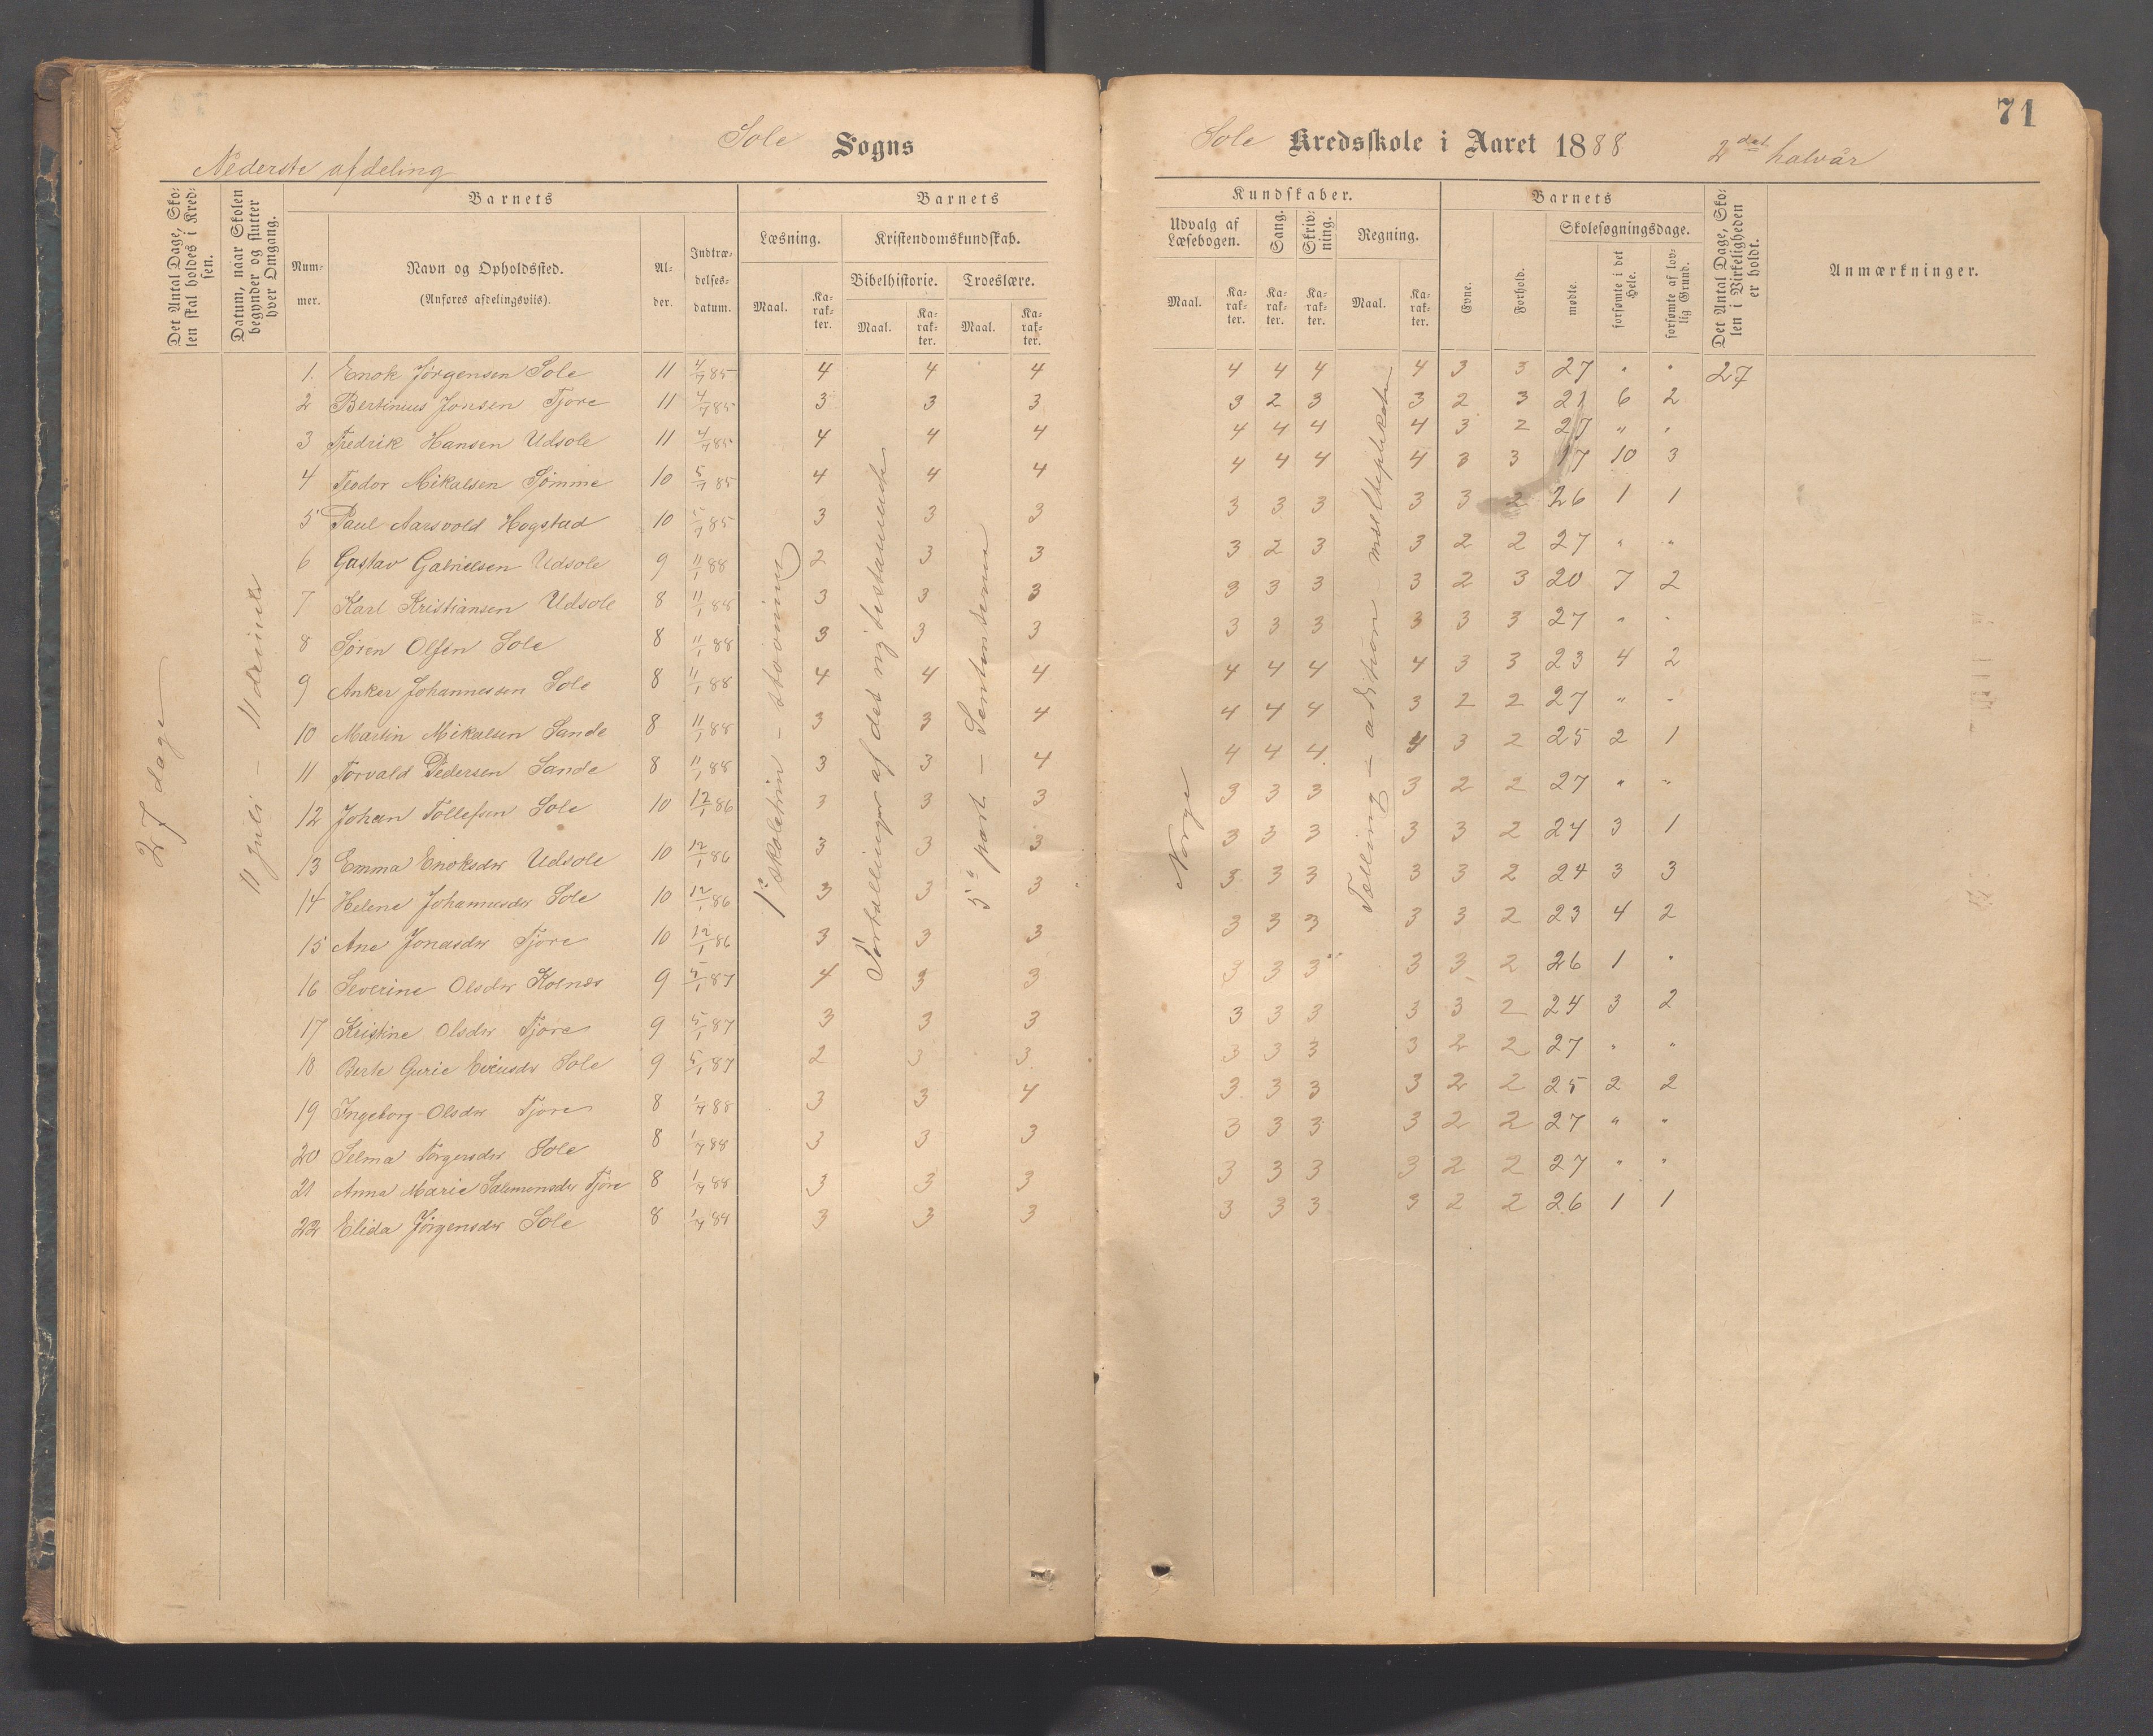 71
Sole Sogns
Sole Kredsskole i Aaret 1888 2det halvår
Nederste afdeling
Det Antal Dage, Skolen skal holdes i Kredsen.
Datum, naar Skolen begynder og slutter hver Omgang.
Barnets
Nummer.
Navn og Opholdssted.
(Anføres afdelingsviis).
Alder.
Indtrædelsesdatum.
Barnets
Læsning.
Maal.
Karakter.
Kristendomskundskab.
Bibelhistorie.
Maal.
Karakter.
Troeslære.
Maal.
Karakter.
Kundskaber.
Udvalg af Læsebogen.
Maal.
Karakter.
Sang.
Karakter.
Skrivning.
Karakter.
Regning.
Maal.
Karakter.
Barnets
Evne.
Forhold.
Skolesøgningsdage.
mødte.
forsømte i det Hele.
forsømte af lovlig Grund.
Det Antal Dage, Skolen i Virkeligheden er holdt.
Anmærkninger.
27 dage
11 juli – 11
1ste skoletrin – stavning
Fortællinger af det ny testamente
5te part – Sentenserne
Norge
Telling – adition – moselteplikation
1. Enok Jørgensen Sole 11 4/7 85 4 4 4 4 4 4 4 3 3 27 " " 27
2 Bertinius Jonsen Tjore 11 4/7 85 3 3 3 3 2 3 3 2 3 21 6 2
3 Fredrik Hansen Udsole 11 4/7 85 4 4 4 4 4 4 4 3 2 27 " "
4 Teodor Mikalsen Sømme 10 5/7 85 4 4 4 4 4 4 4 3 3 17 10 3
5 Paul Aarsvold Hogstad 10 "/7 85 3 3 3 3 3 3 3 3 2 26 1 1
6 Gustav Gabrielsen Udsole 9 11/1 88 2 3 3 3 2 3 3 2 2 27 " "
7 Karl Kristiansen Udsole 8 11/1 88 3 3 3 3 3 3 3 2 3 20 7 2
8 Søren Olsen Sole 8 11/1 88 3 3 3 3 3 3 3 3 3 27 " "
9 Anker Johannessen Sole 8 11/1 88 4 4 4 4 4 4 4 3 3 23 4 2
10 Martin Mikalsen Sande 8 11/1 88 3 3 4 4 4 4 3 2 2 27 " "
11 Torvald Pedersen Sande 8 11/1 88 3 3 4 4 4 4 4 3 2 25 2 1
12 Johan Tollefsen Sole 10 12/1 86 3 3 3 3 3 3 3 2 2 27 " "
13 Emma Enoksdr Udsole 10 12/1 86 3 3 3 3 3 3 3 3 2 24 3 1
14 Helene Johannesdr Sole 10 12/1 86 3 3 3 3 3 3 3 3 2 24 3 3
15 Ane Jonasdr Tjore 10 12/1 86 3 3 3 3 3 3 3 3 2 23 4 2
16 Severine Olsdr Kolnes 9 5/1 87 4 3 3 3 3 3 3 3 2 26 1 "
17 Kristine Olsdr Tjore 9 5/1 87 3 3 3 3 3 3 3 3 2 24 3 2
18 Berte Gurie Sole 9 5/1 87 2 3 3 3 3 3 3 2 2 27 " "
19 Ingeborg Olsdr Tjore 8 1/7 88 3 3 4 3 3 3 3 2 2 25 2 2
20 Selma Torgersdr Sole 8 1/7 88 3 3 3 3 3 3 3 2 2 27 " "
21 Anna Marie Salomonsdr Tjore 8 1/7 88 3 3 3 3 3 3 3 2 2 27 " "
22 Elida Jørgensdr Sole 8 1/7 88 3 3 3 3 3 3 3 2 2 26 1 1